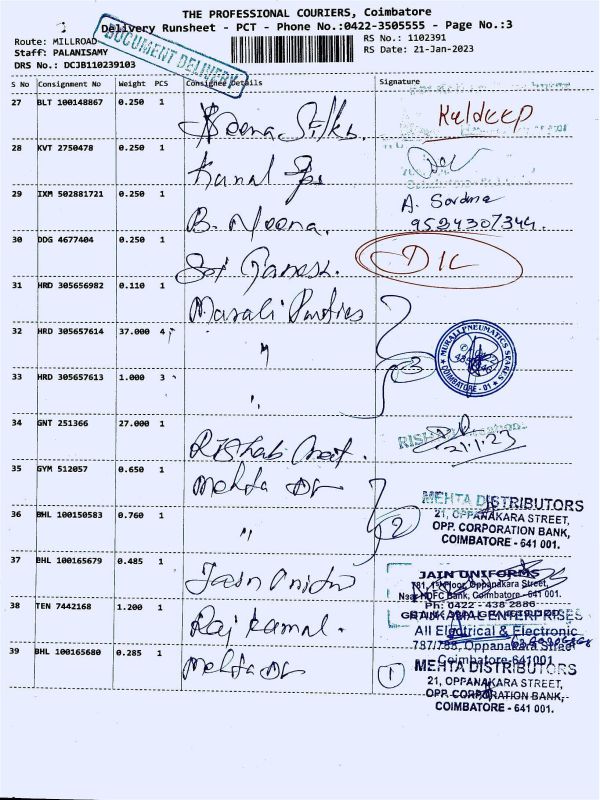 THE PROFESSIONAL COURIERS, Coimbatore
Delivery Runsheet - PCT - Phone No.:0422-3505555 - Page No.:3
Route: MILLROAD
Staff: PALANISAMY
DRS No.: DCJB110239103
RS No.: 1102391
RS Date: 21-Jan-2023
DOCUMENT DELIVERY
S No Consignment No Weight PCS Consignee Details Signature
27 BLT 100148867 0.250 1 Kuldeep
28 KVT 2750478 0.250 1 Kunal
29 IXM 502881721 0.250 1 B. Meena. A.
9524307344
30 DDG 4677404 0.250 1 Sri Ganesh. DIL
31 HRD 305656982 0.110 1
32 HRD 305657614 37.000 4 " 3
MURALI PNEUMATICS SPARES
COIMBATORE - 01
33 HRD 305657613 1.000 3 "
34 GNT 251366 27.000 1 Rishab
21.1.23
35 GYM 512057 0.650 1 Mehta
36 BHL 100150583 0.760 1 " 2
MEHTA DISTRIBUTORS
21, OPPANAKARA STREET,
OPP. CORPORATION BANK,
COIMBATORE - 641 001.
37 BHL 100165679 0.485 1 Jain
JAIN UNIFORMS
781, 1st Floor, Oppanakara Street,
Near HDFC Bank, Coimbatore - 641 001.
Ph: 0422 - 438 2886
38 TEN 7442168 1.200 1 Raj Kamal.
RAJKAMAL ENTERPRISES
All Electrical & Electronic
Oppanakara Street
Coimbatore-641001
39 BHL 100165680 0.285 1 Mehta 1
MEHTA DISTRIBUTORS
21, OPPANAKARA STREET,
OPP. CORPORATION BANK,
COIMBATORE - 641 001.